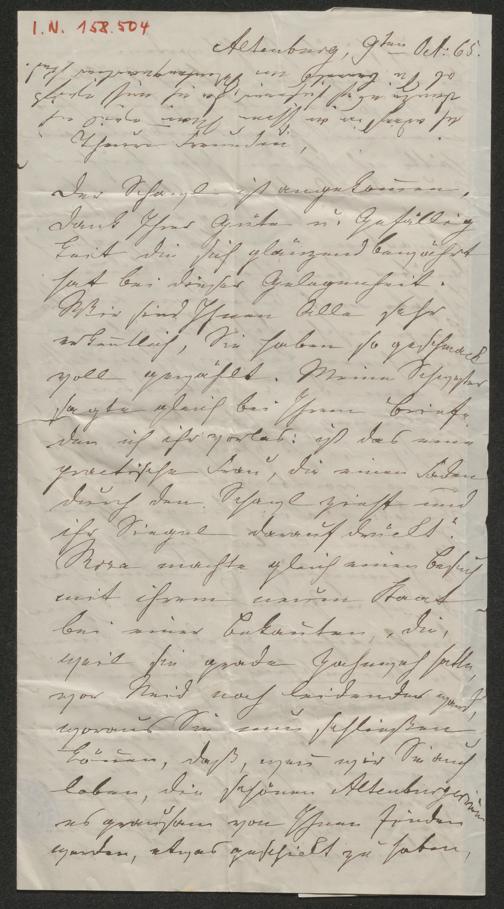 I.N. 158.504
Altenburg, 9ten Oct: 65.
Theure Freundin,
Der Schawl ist angekommen,
Dank Ihrer Güte u. Gefällig
keit die sich glänzend bewährt
hat bei dieser Gelegenheit.
Wir sind Ihnen Alle sehr
erkentlich, Sie haben so geschmack
voll gewählt. Meine Schwester
sagte gleich bei Ihrem Briefe
den ich ihr vorlas: ist das eine
practische Frau, die einen Faden
durch den Schawl zieht und
ihr Siegel darauf drückt".
Rosa machte gleich einen Besuch
mit ihrem neuen Staat
bei einer Bekanten, die,
weil sie grade Zahnweh hatte,
vor Neid noch leidender ward,
woraus Sie nun schließen
können, daß, wenn wir Sie auch
loben, die schönen Altenburgerinnen
es grausam von Ihnen finden
werden, etwas geschickt zu haben,